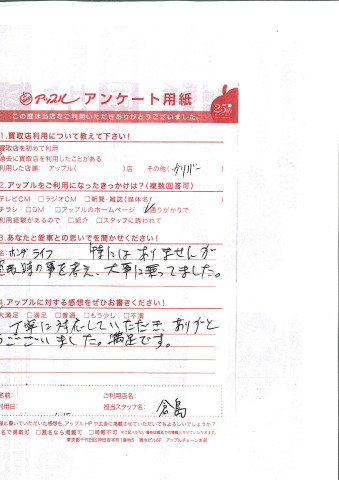 アップル アンケート用紙
25th
この度は当店をご利用いただきありがとうございました。
1.買取店利用について教えて下さい!
買取店を初めて利用
過去に買取店を利用したことがある
利用した店舗: アップル( )店 その他( )
2.アップルをご利用になったきっかけは?(複数回答可)
テレビCM □ラジオCM □新聞・雑誌(媒体名/ )
チラシ □DM □アップルのホームページ 通りがかりで
利用経験があるので □紹介 □スタッフに誘われて
3.あなたと愛車との思いでを聞かせください!
名:ホンダ ライフ 特にはありませんが
時の事を考え、大事に乗ってました。
.アップルに対する感想をぜひお書きください!
大満足 □満足 □普通 □もう少し □不満
丁寧に対応していただき、ありがと
うございました。満足です。
名前: ご利用店名:
利用日: 担当スタッフ名: 倉島
様に書いていただいた感想を、アップルHPや広告に掲載させていただいてもよろしいでしょうか?
名で掲載可 □匿名なら掲載可 □掲載不可 ※ご記入がない場合は匿名での掲載とさせていただきます。
東京都千代田区神田佐久間町1番地5 清水ビル6F アップルチェーン本部